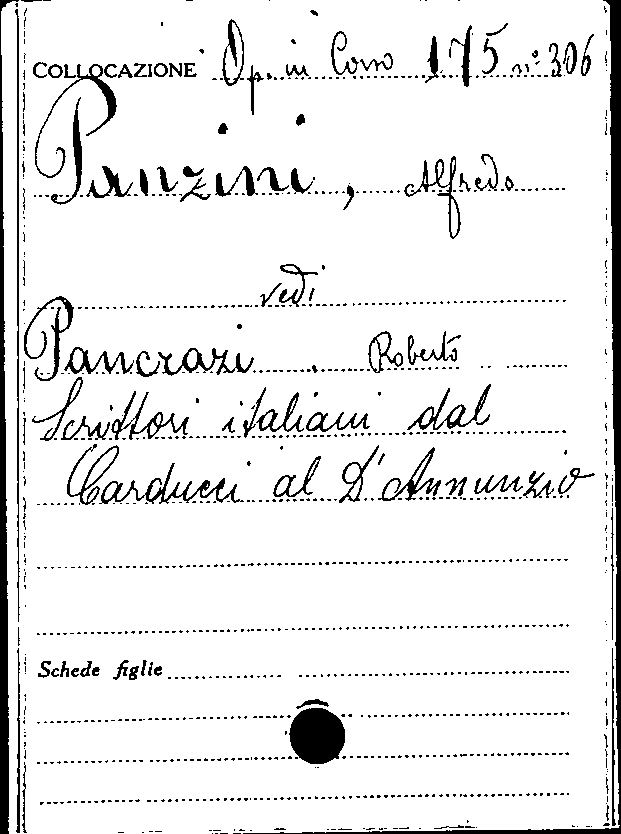 COLLOCAZIONE Op. in Corso 175 n° 306
Panzini, Alfredo
vedi
Pancrazi. Roberto
Scrittori italiani dal
Carducci al D'Annunzio
Schede figlie